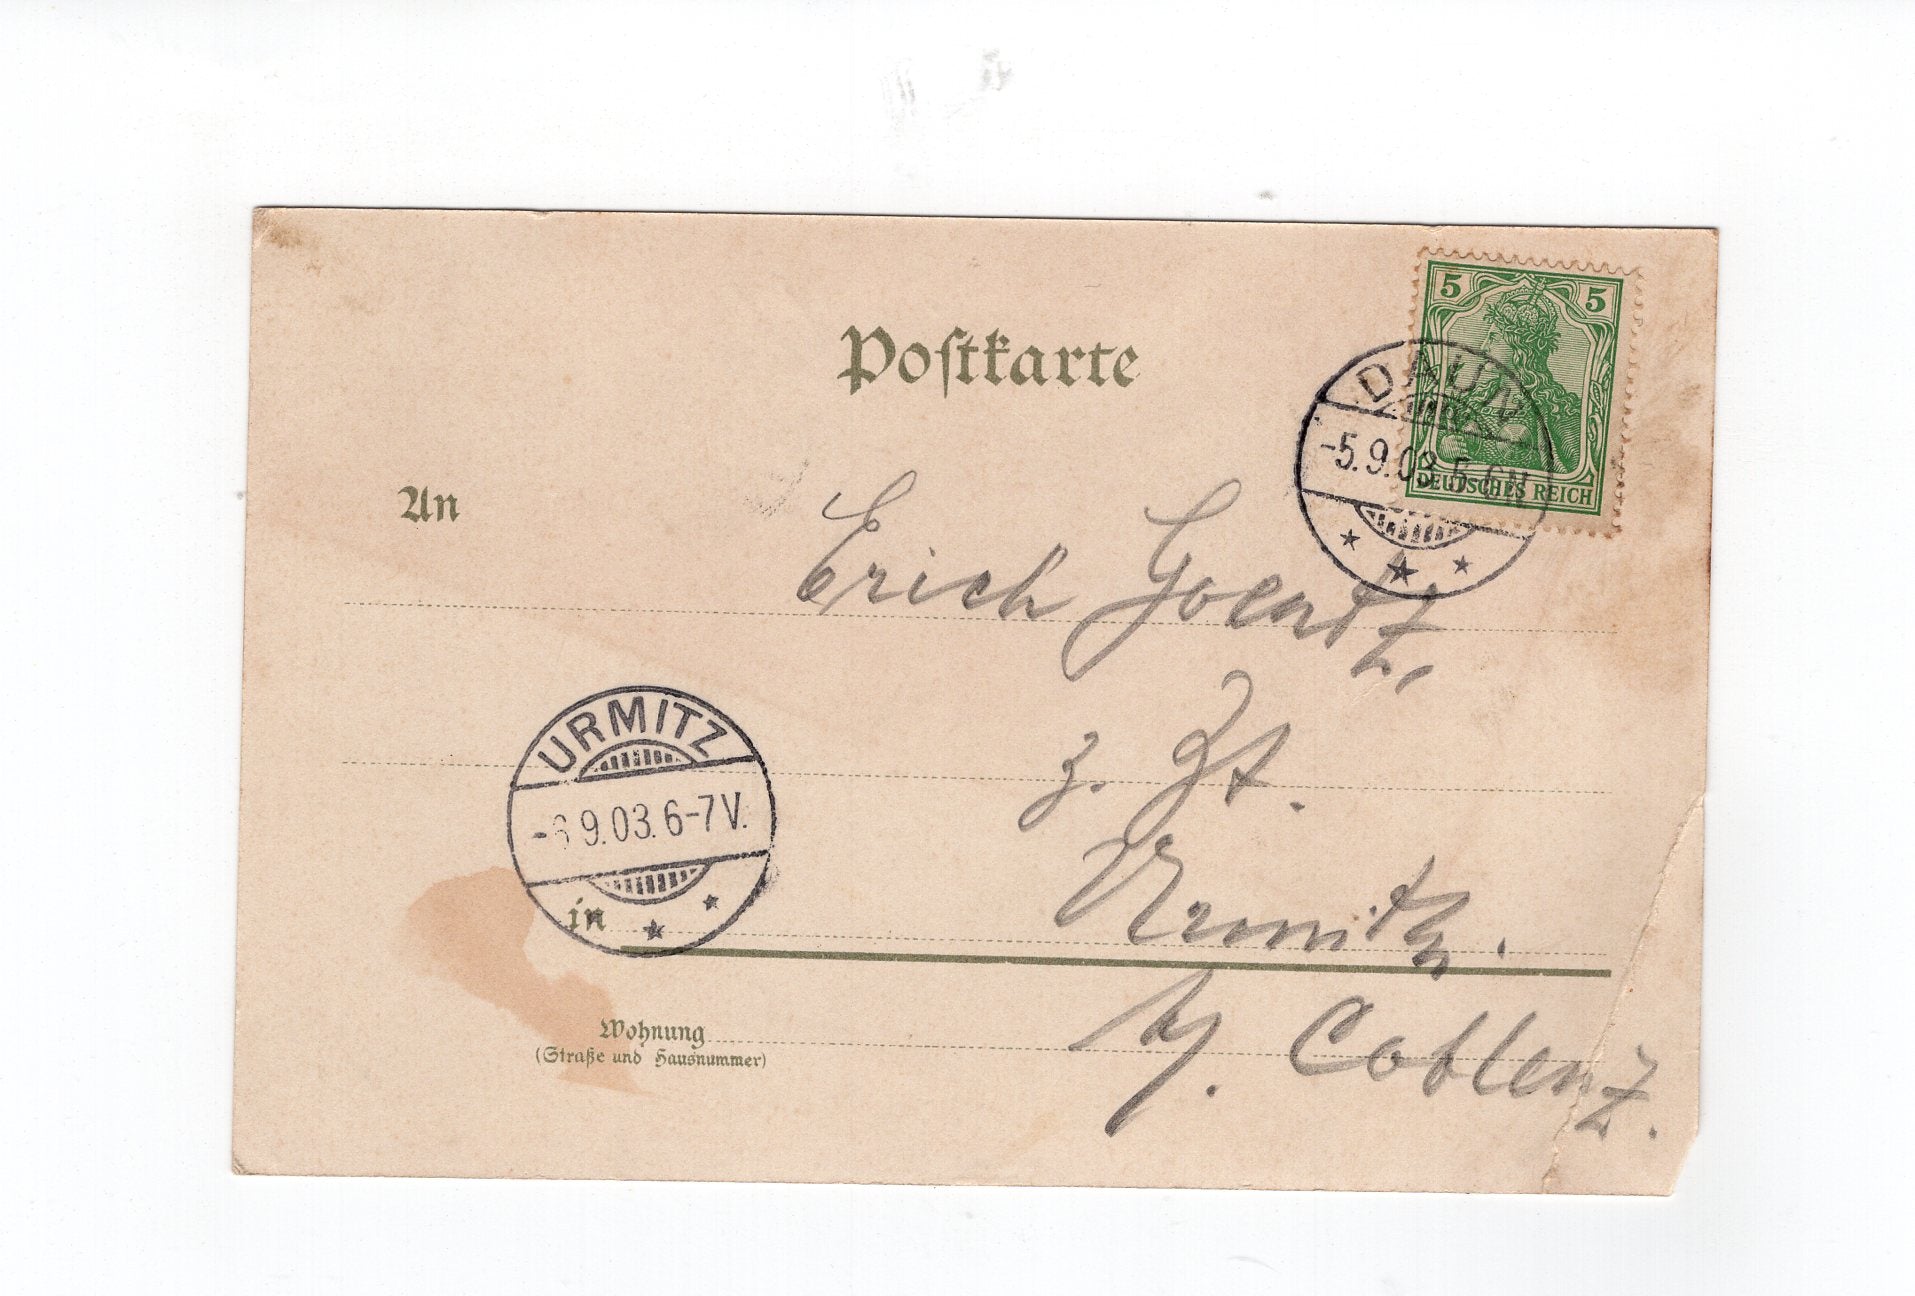 Postkarte
5 5
DEUTSCHES REICH
DAUN
-5.9.03.5-6N
An
Erich Goentz,
z. Zt.
URMITZ
-6 9.03.6-7V.
in
Urmitz.
b/. Coblenz.
Wohnung
(Straße und Hausnummer)